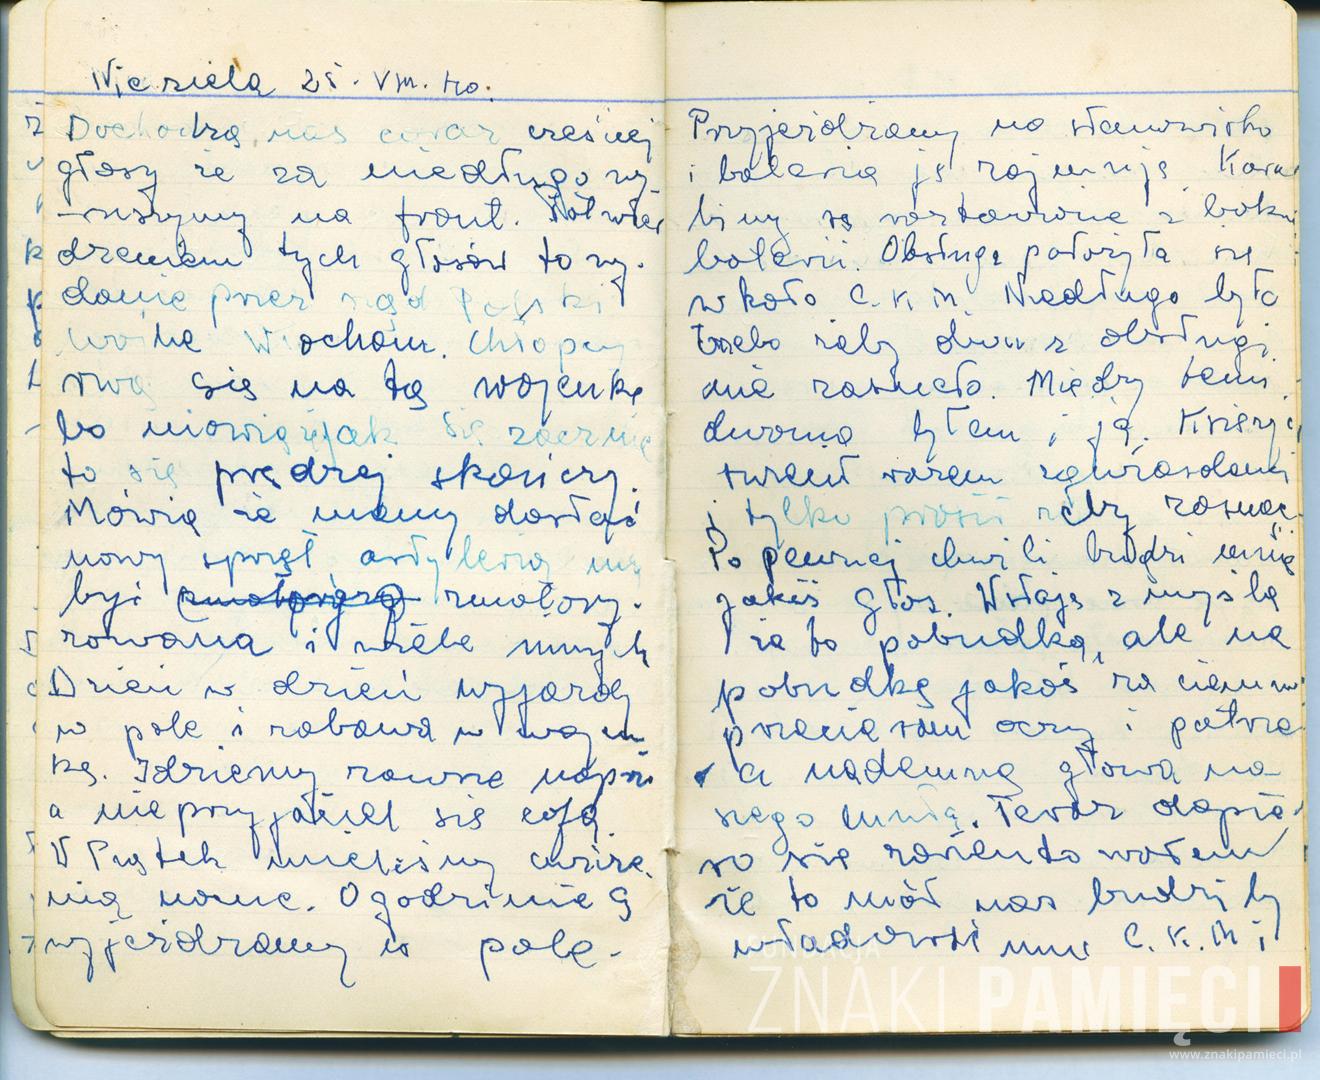 Niedziela 25. VIII. 40.
Dochodzą nas coraz cześciej
głosy że za niedługo wy-
-ruszymy na front. Potwier
dzeniem tych głosów to wy-
danie przez rząd Polski
wojne Włochom. Chłopcy
rwą się na tą wojenkę
bo mówią, jak się zacznie
to się prędzej skończy.
Mówią że mamy dostać
nowy sprzęt artyleria ma
być zmotory-
zowana i wiele innych
Dzień w dzień wyjazdy
w pole i zabawa w wojen
kę. Idziemy zawsze naprzó
a nieprzyjaciel się cofa.
W Piątek mieliśmy ćwicze-
nia nocne. O godzinie 9
wyjeżdzamy w pole.
Przyjeżdzamy na stanowisko
i bateria je zajmuje. Kara
biny są rostawione z boku
baterii. Obsługa położyła się
w koło C.K.M. Niedługo było
trzeba żeby dwu z obsługi
nie zasneło. Między temi
dwoma byłem i ja. Księżyc
świecił
i tylko prosił żeby zasnąć
Po pewnej chwili budzi mnie
jakiś głos. Wstaje z myślą
że to pobudka, ale na
pobudkę jakoś za ciemno
przecieram oczy i patrze
a nademną głowa na-
szego. Teraz dopie-
ro się
że to miał nas budzić by
C.K.M i
FUNDACJA
ZNAKI PAMIĘCI
www.znakipamieci.pl